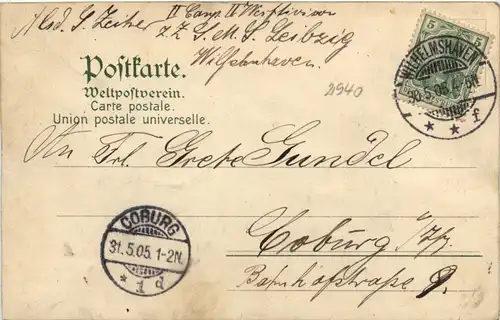 Abs. J. Zeiher II Comp. II Werftdivision
z. Z. S. M. S. Leibzig
Wilhelmshaven.
Postkarte.
Weltpostverein.
Carte postale.
Union postale universelle.
21940
5 5
WILHELMSHAVEN
* * f
An Frl. Grete Gundel
Coburg
Bahnhofstraße 9.
COBURG
31.5.05.1-2N.
* 1 d